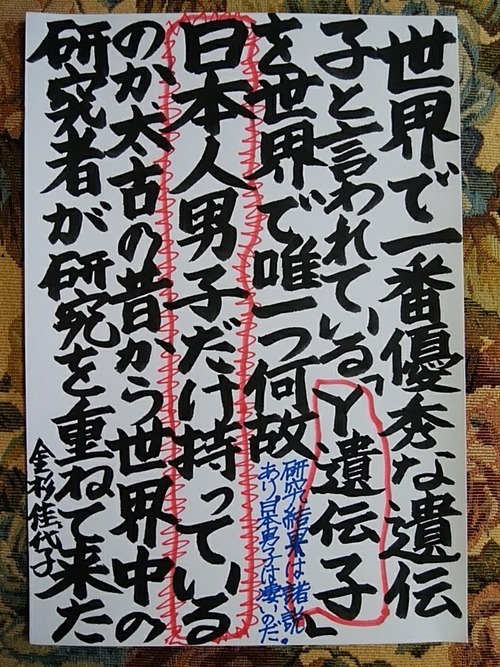 世界で一番優秀な遺伝
子と言われている「Y遺伝子」
を世界で唯一つ何故
日本人男子だけ持っている
のか、太古の昔から世界中の
研究者が研究を重ねて来た
研究結果は諸説
あり、日本男子は凄いのだ!
金杉佳代子